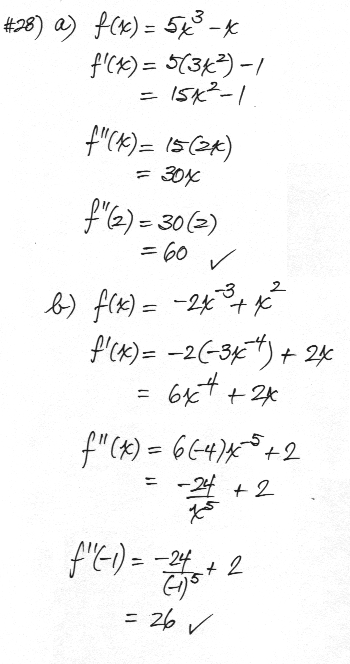 #28) a) f(x) = 5x³ - x
f'(x) = 5(3x²) - 1
= 15x² - 1
f''(x) = 15(2x)
= 30x
f''(2) = 30(2)
= 60 ✓
b) f(x) = -2x⁻³ + x²
f'(x) = -2(-3x⁻⁴) + 2x
= 6x⁻⁴ + 2x
f''(x) = 6(-4)x⁻⁵ + 2
= -24/x⁵ + 2
f''(-1) = -24/(-1)⁵ + 2
= 26 ✓